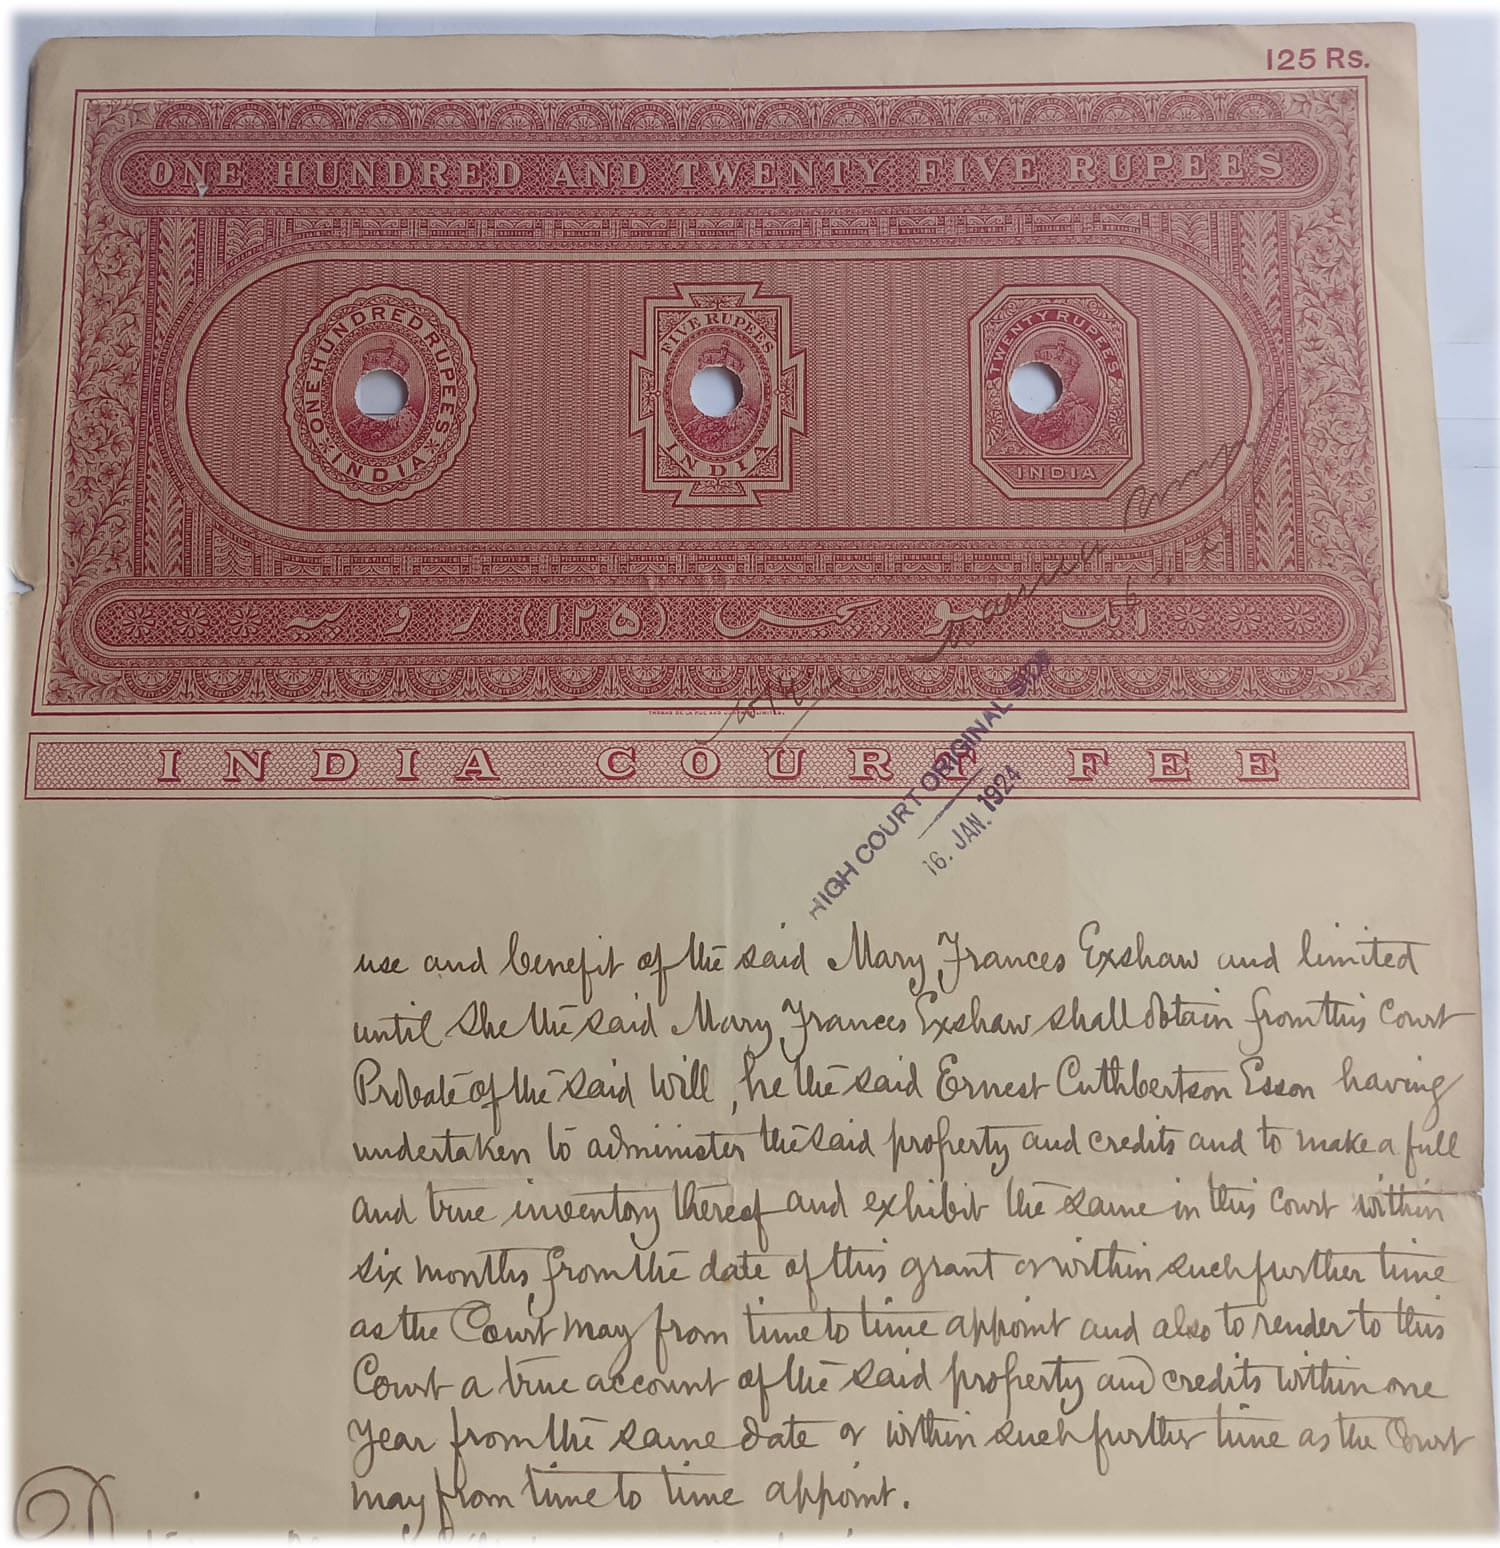 125 Rs.
ONE HUNDRED AND TWENTY FIVE RUPEES
ONE HUNDRED RUPEES
INDIA
FIVE RUPEES
INDIA
TWENTY RUPEES
INDIA
ایک سو پچیس (۱۲۵) روپیہ
THOMAS DE LA RUE AND COMPANY, LIMITED.
INDIA COURT FEE
HIGH COURT ORIGINAL SIDE
16. JAN. 1924
use and benefit of the said Mary Frances Exshaw and limited
until she the said Mary Frances Exshaw shall obtain from this Court
Probate of the said Will, he the said Ernest Cuthbertson Esson having
undertaken to administer the said property and credits and to make a full
and true inventory thereof and exhibit the same in this Court within
six months from the date of this grant or within such further time
as the Court may from time to time appoint and also to render to this
Court a true account of the said property and credits within one
year from the same date or within such further time as the Court
may from time to time appoint.